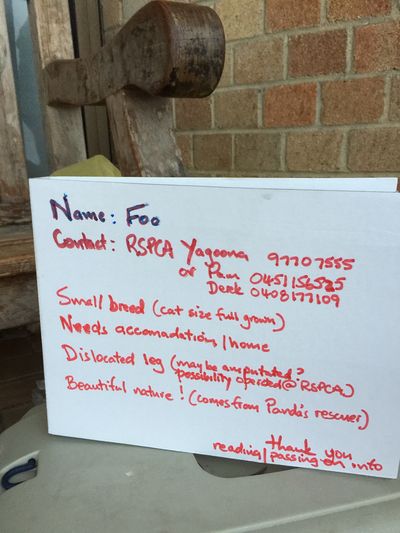 Name: Foo
Contact: RSPCA Yagoona 97707555
or Pam 0451156525
Derek 0408177109
Small breed (cat size full grown)
Needs accomadation/home
Dislocated leg (maybe amputated?
possibility operded@RSPCA)
Beautiful nature! (comes from Panda's rescuer)
thank you
reading/passing on info